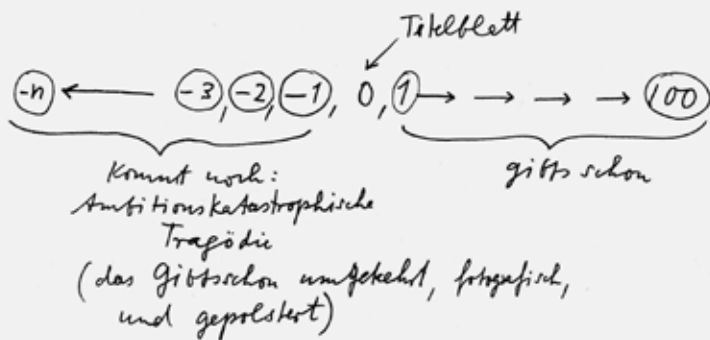 Titelblatt
-n ← -3, -2, -1, 0, 1 → → → → 100
Kommt noch:
Ambitionskatastrophische
Tragödie
(das Gibtsschon umgekehrt, fotografisch,
und gepolstert)
gibts schon